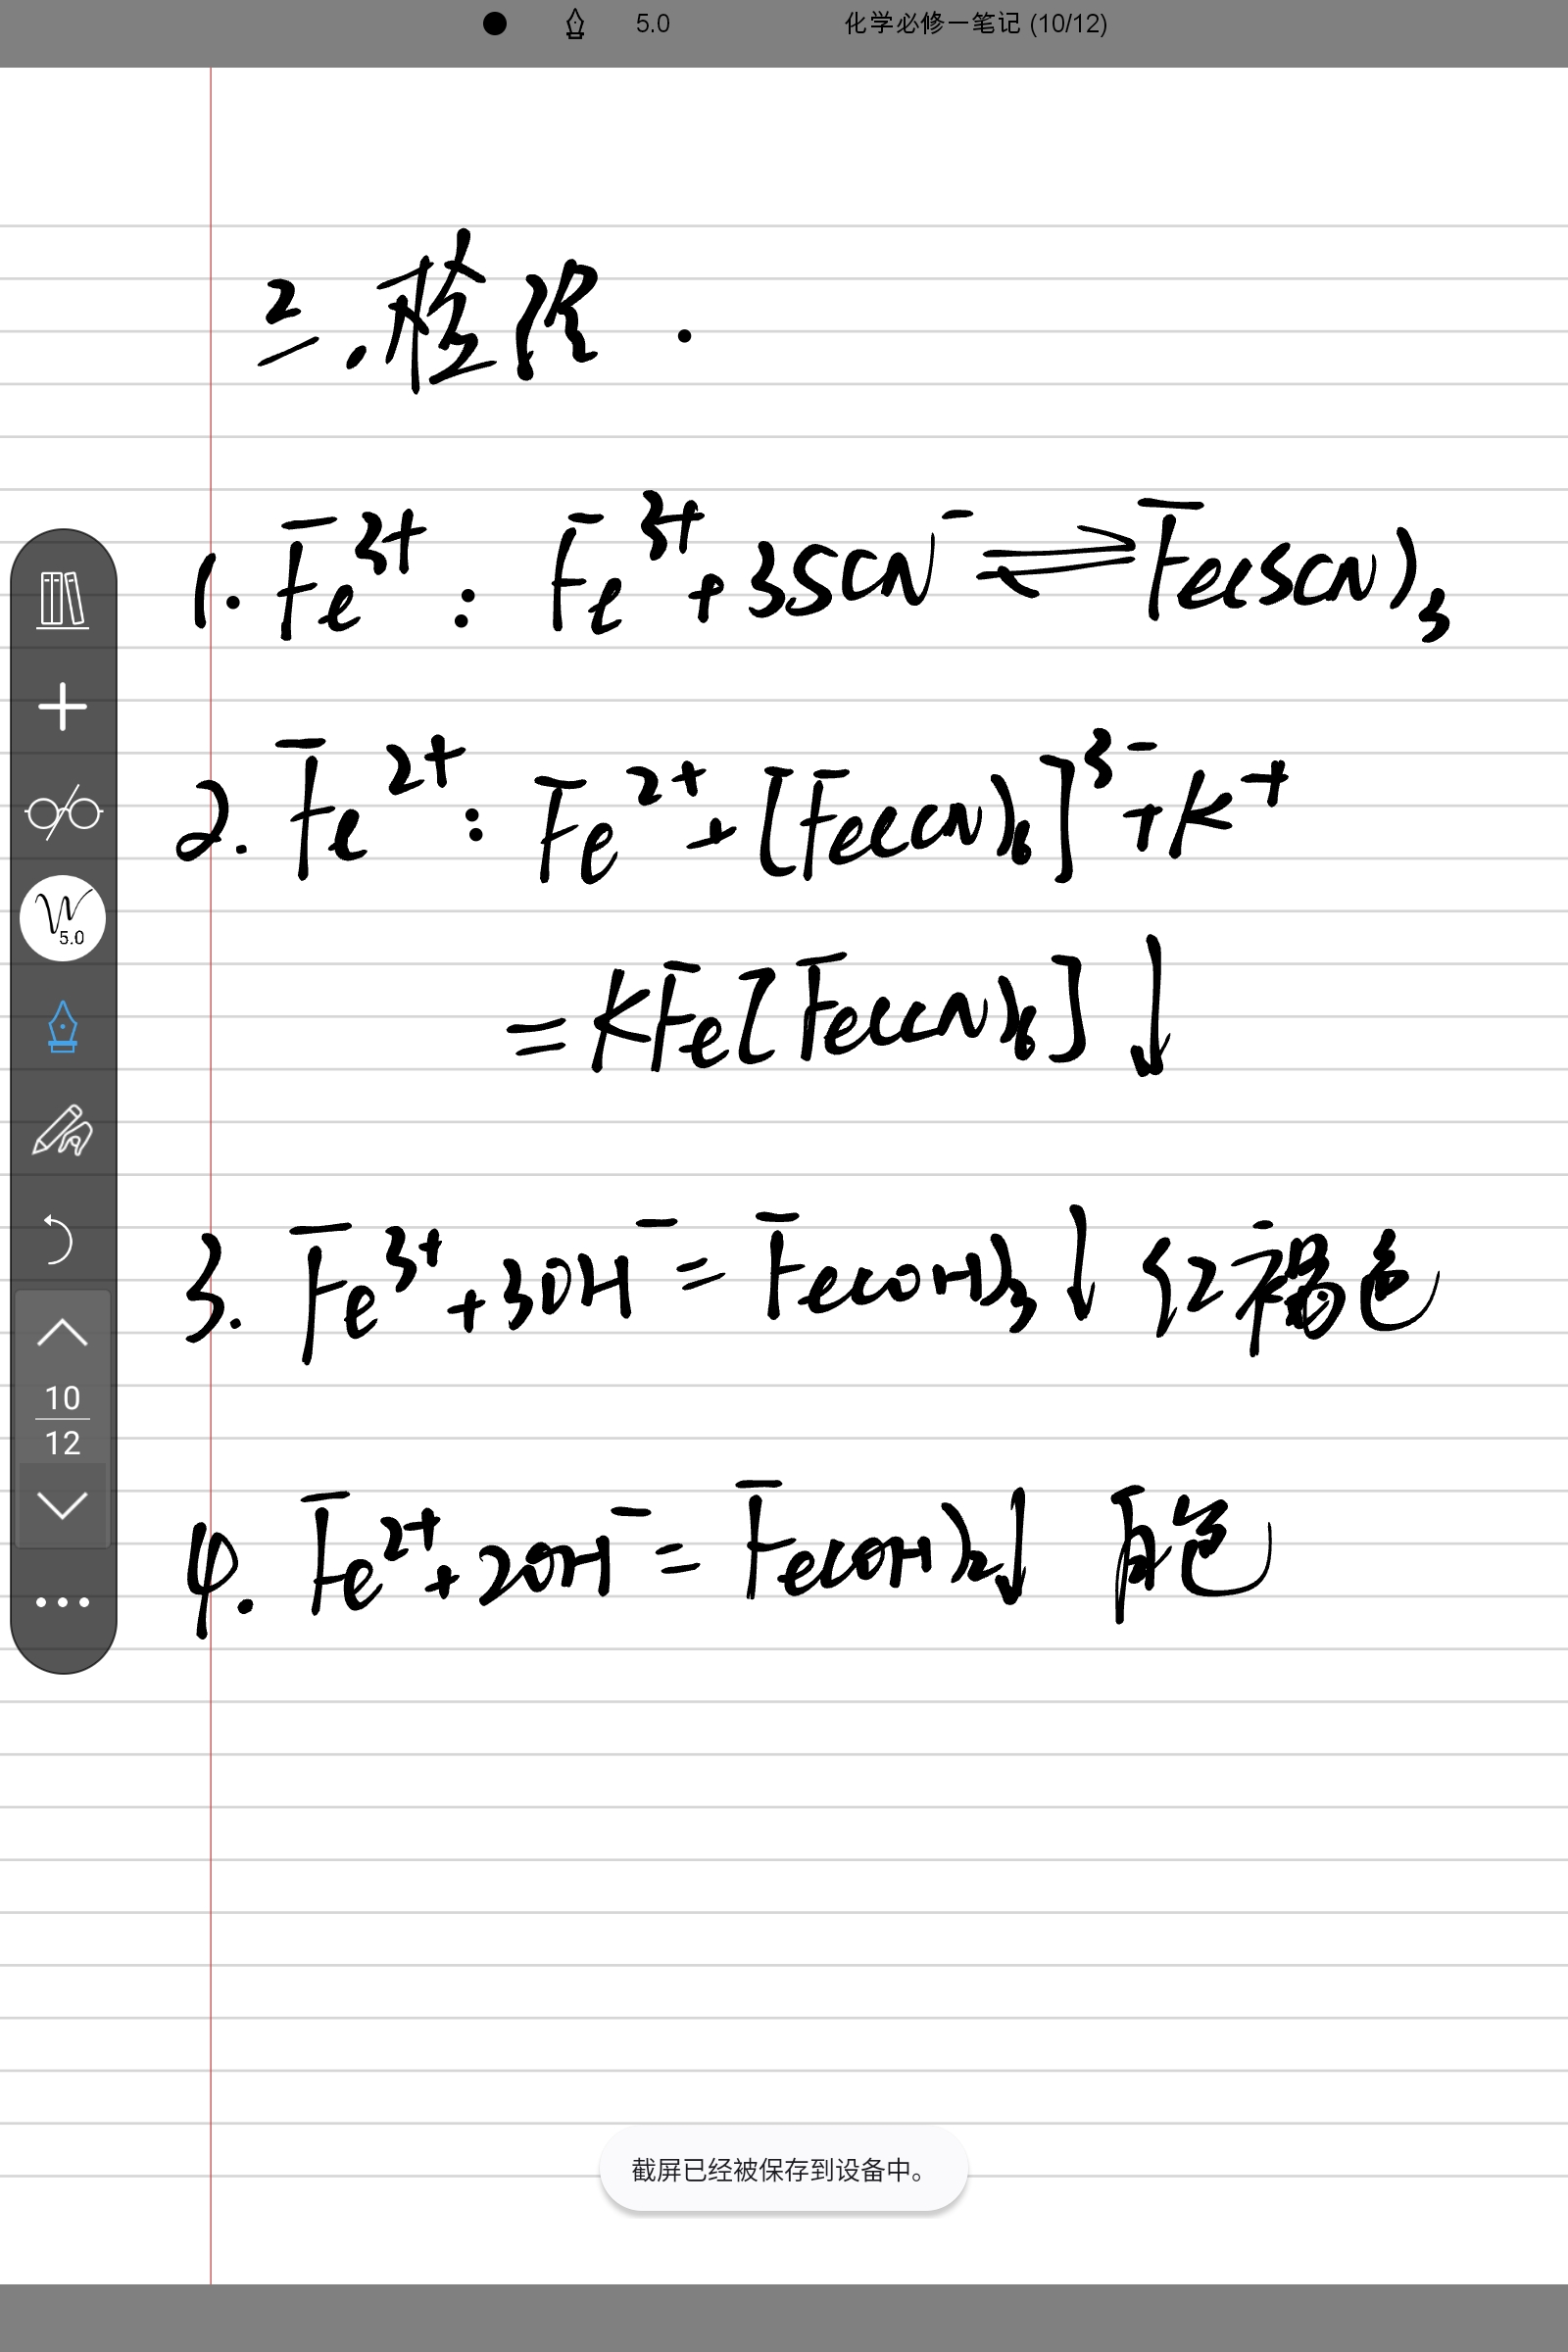 5.0 化学必修一笔记 (10/12)
二.检验.
1. Fe³⁺: Fe³⁺+3SCN⁻⇌Fe(SCN)₃
2. Fe²⁺: Fe²⁺+[Fe(CN)₆]³⁻+K⁺
=KFe[Fe(CN)₆]↓
3. Fe³⁺+3OH⁻=Fe(OH)₃↓ 红褐色
4. Fe²⁺+2OH⁻=Fe(OH)₂↓ 白色
5.0
10
12
截屏已经被保存到设备中。